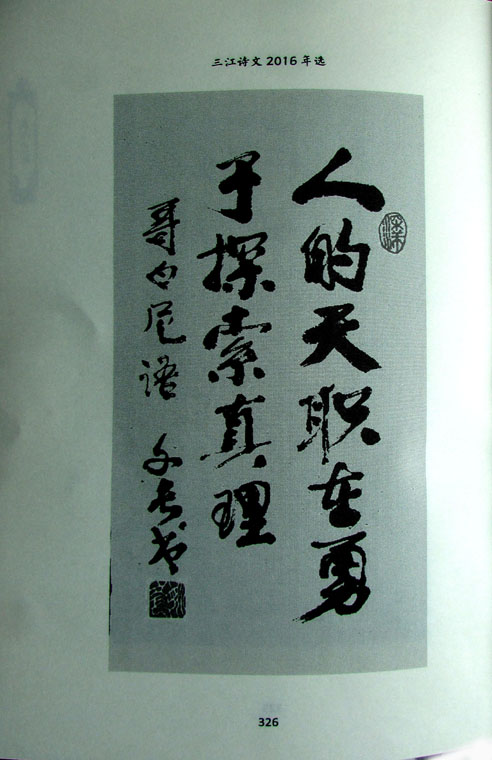 三江诗文2016年选
人的天职在勇
于探索真理
哥白尼语 文长书
326